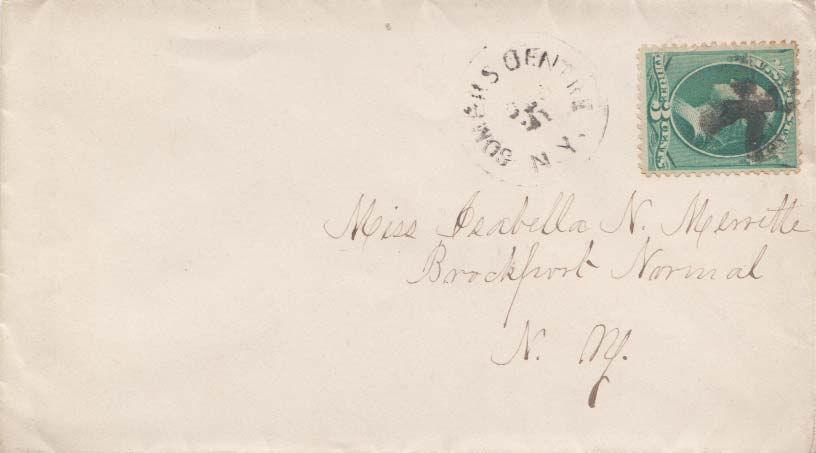 SOMERS CENTRE
N.Y.
Miss Isabella N. Merritte
Brockport Normal
N. Y.